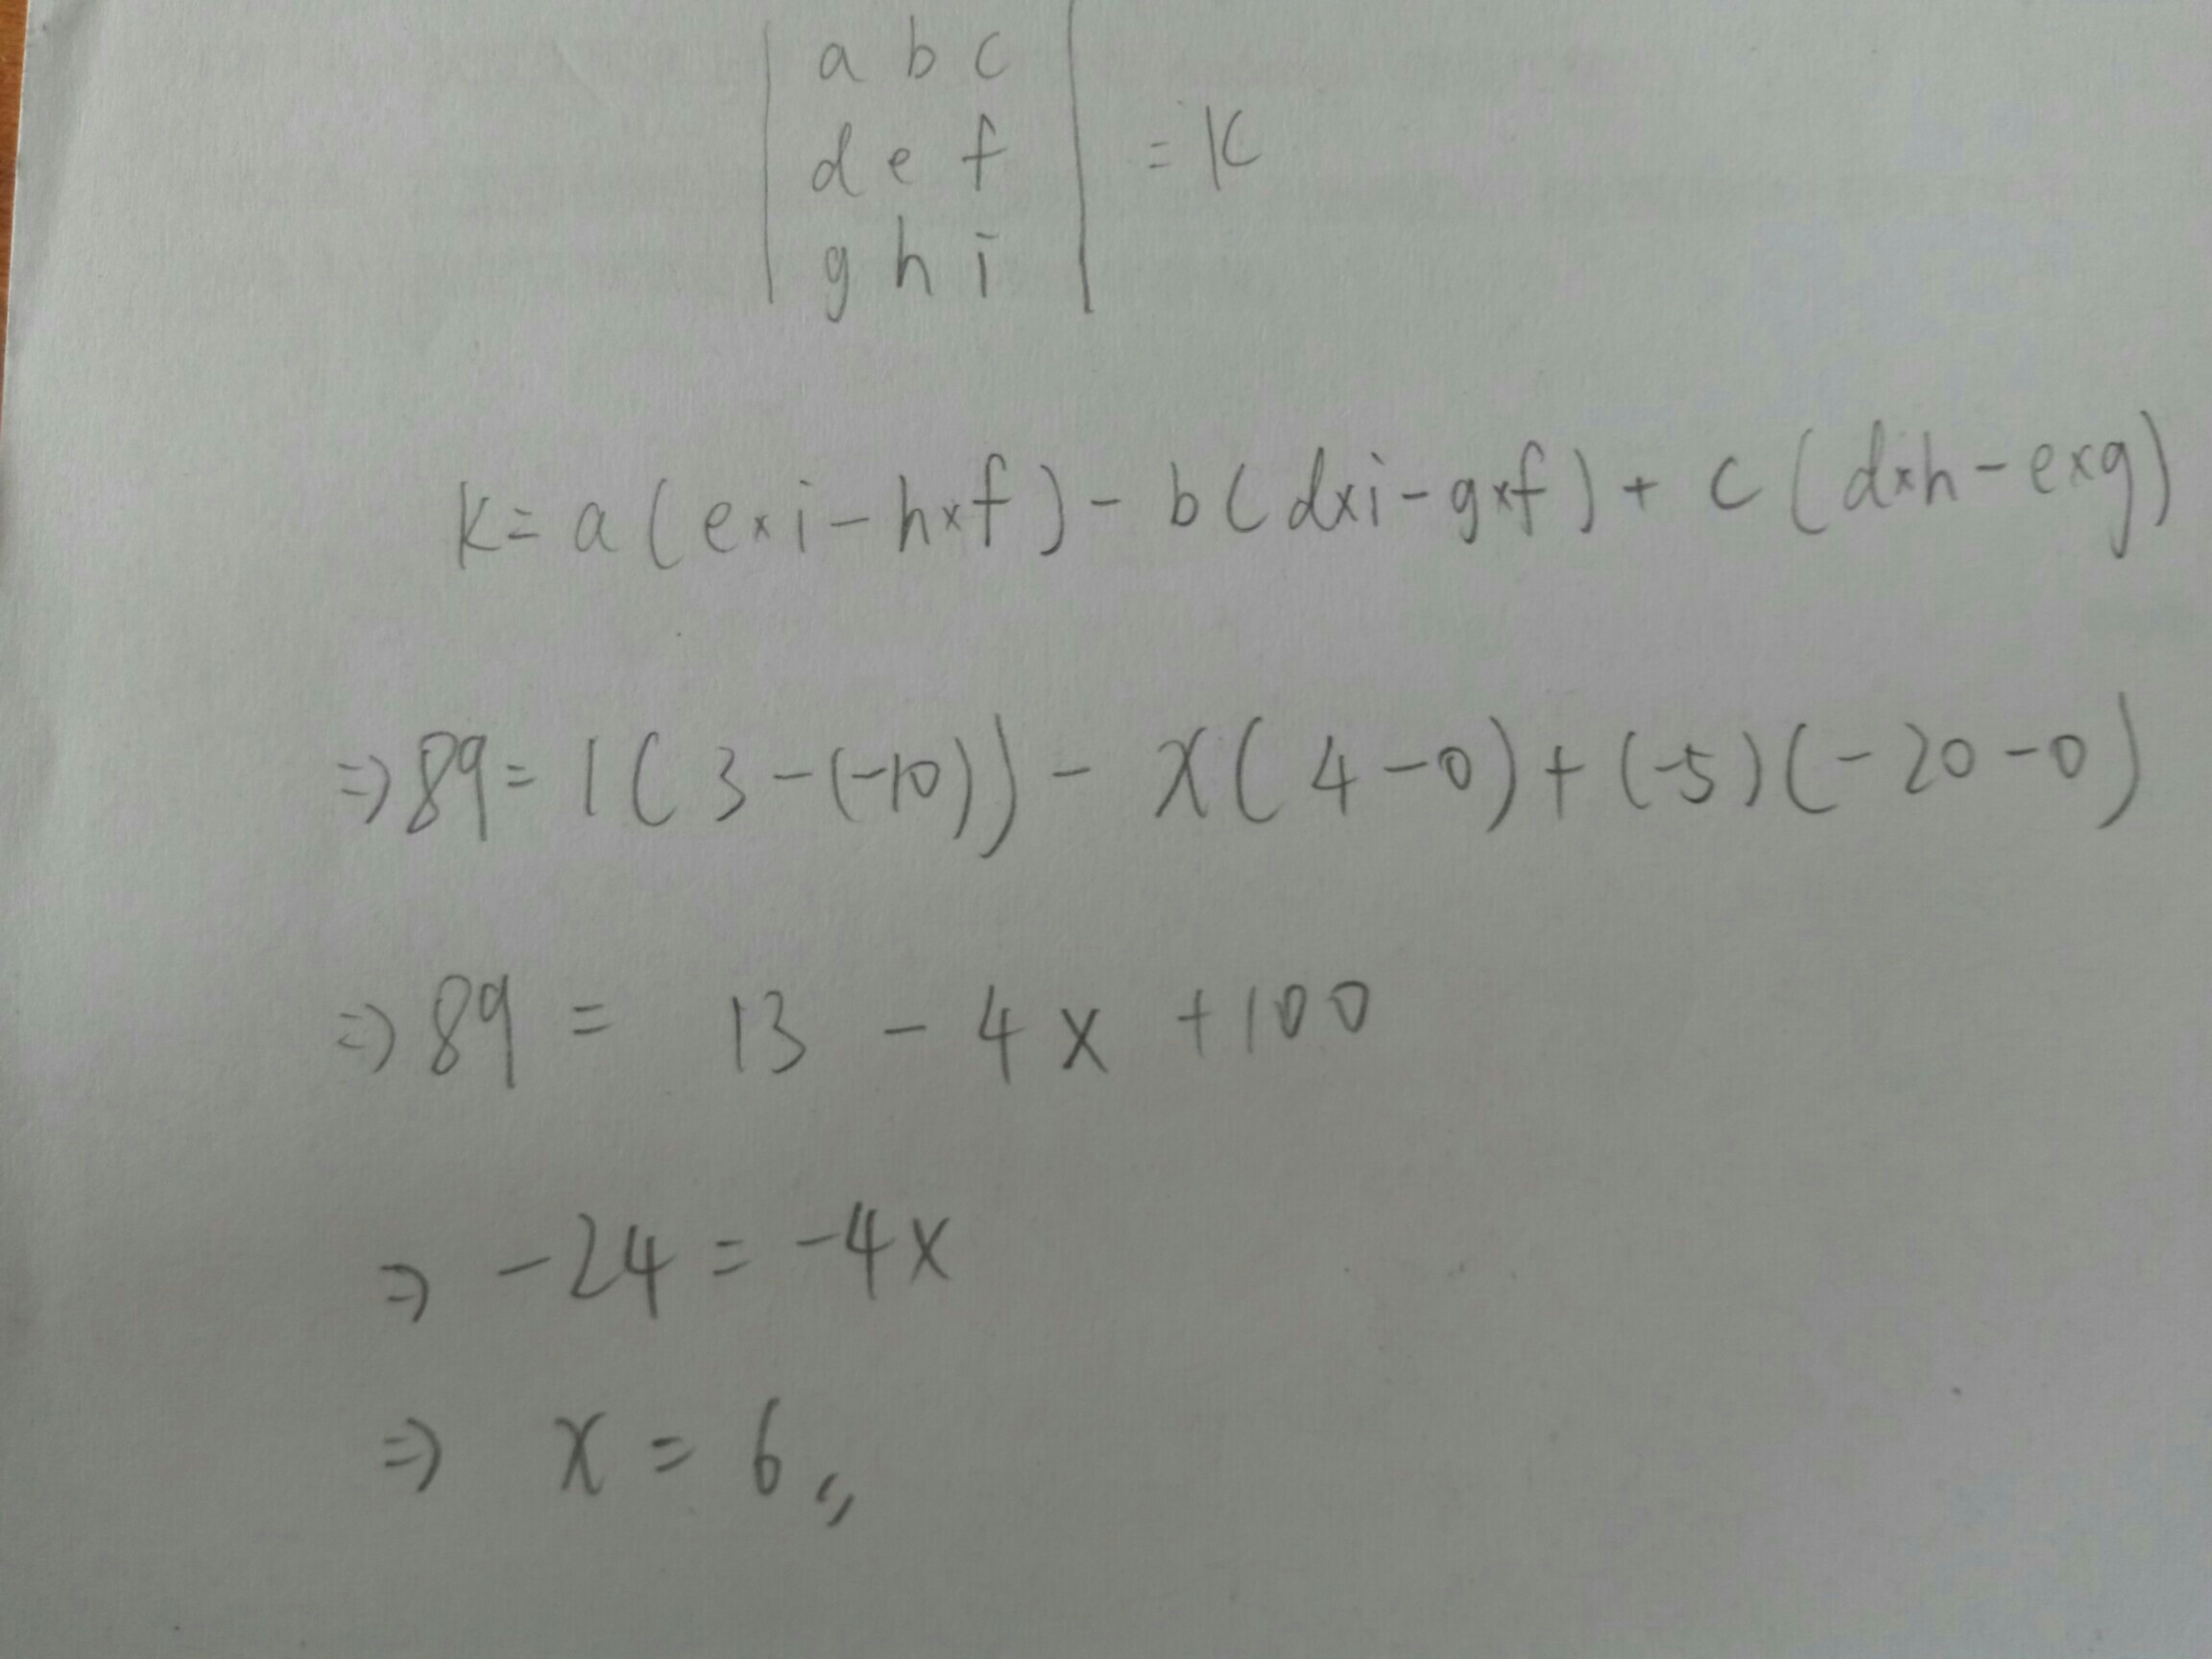 | a b c |
| d e f | = K
| g h i |
K = a(e×i-h×f) - b(d×i-g×f) + c(d×h-e×g)
⇒ 89 = 1(3-(-10)) - x(4-0) + (-5)(-20-0)
⇒ 89 = 13 - 4x + 100
⇒ -24 = -4x
⇒ x = 6,,